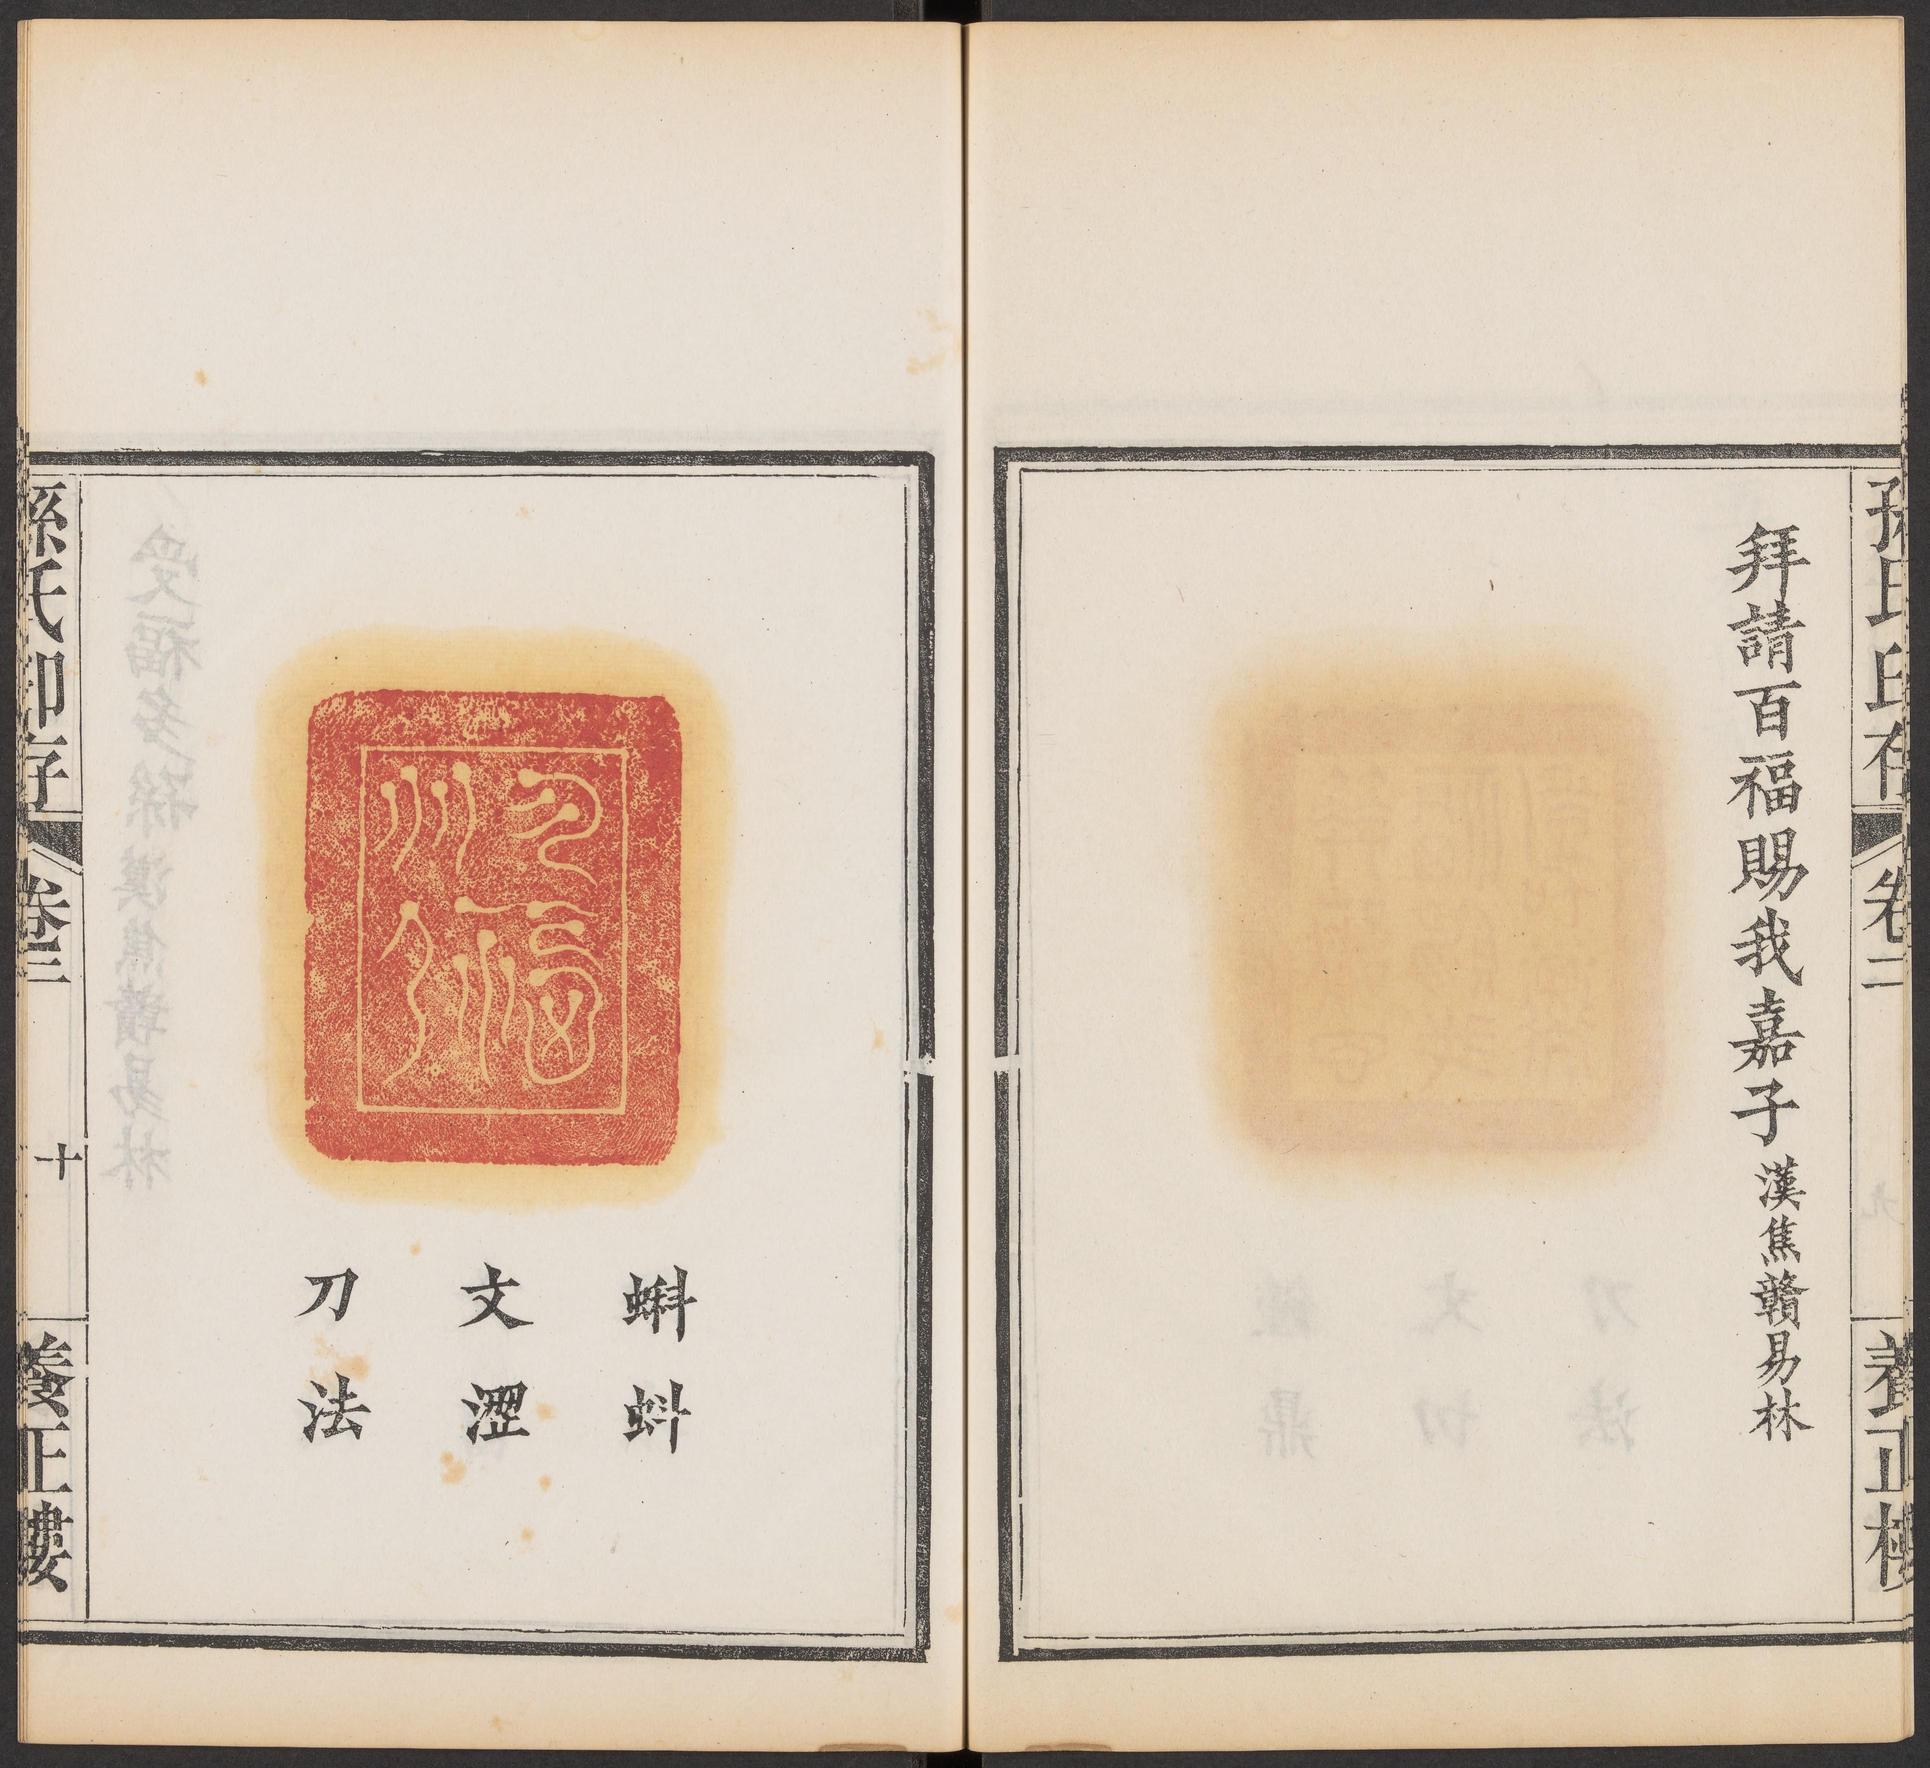 孫氏印存
卷二
養正樓
拜請百福賜我嘉子漢焦贛易林
蝌蚪
文澀
刀法
孫氏印存
卷三
十
養正樓